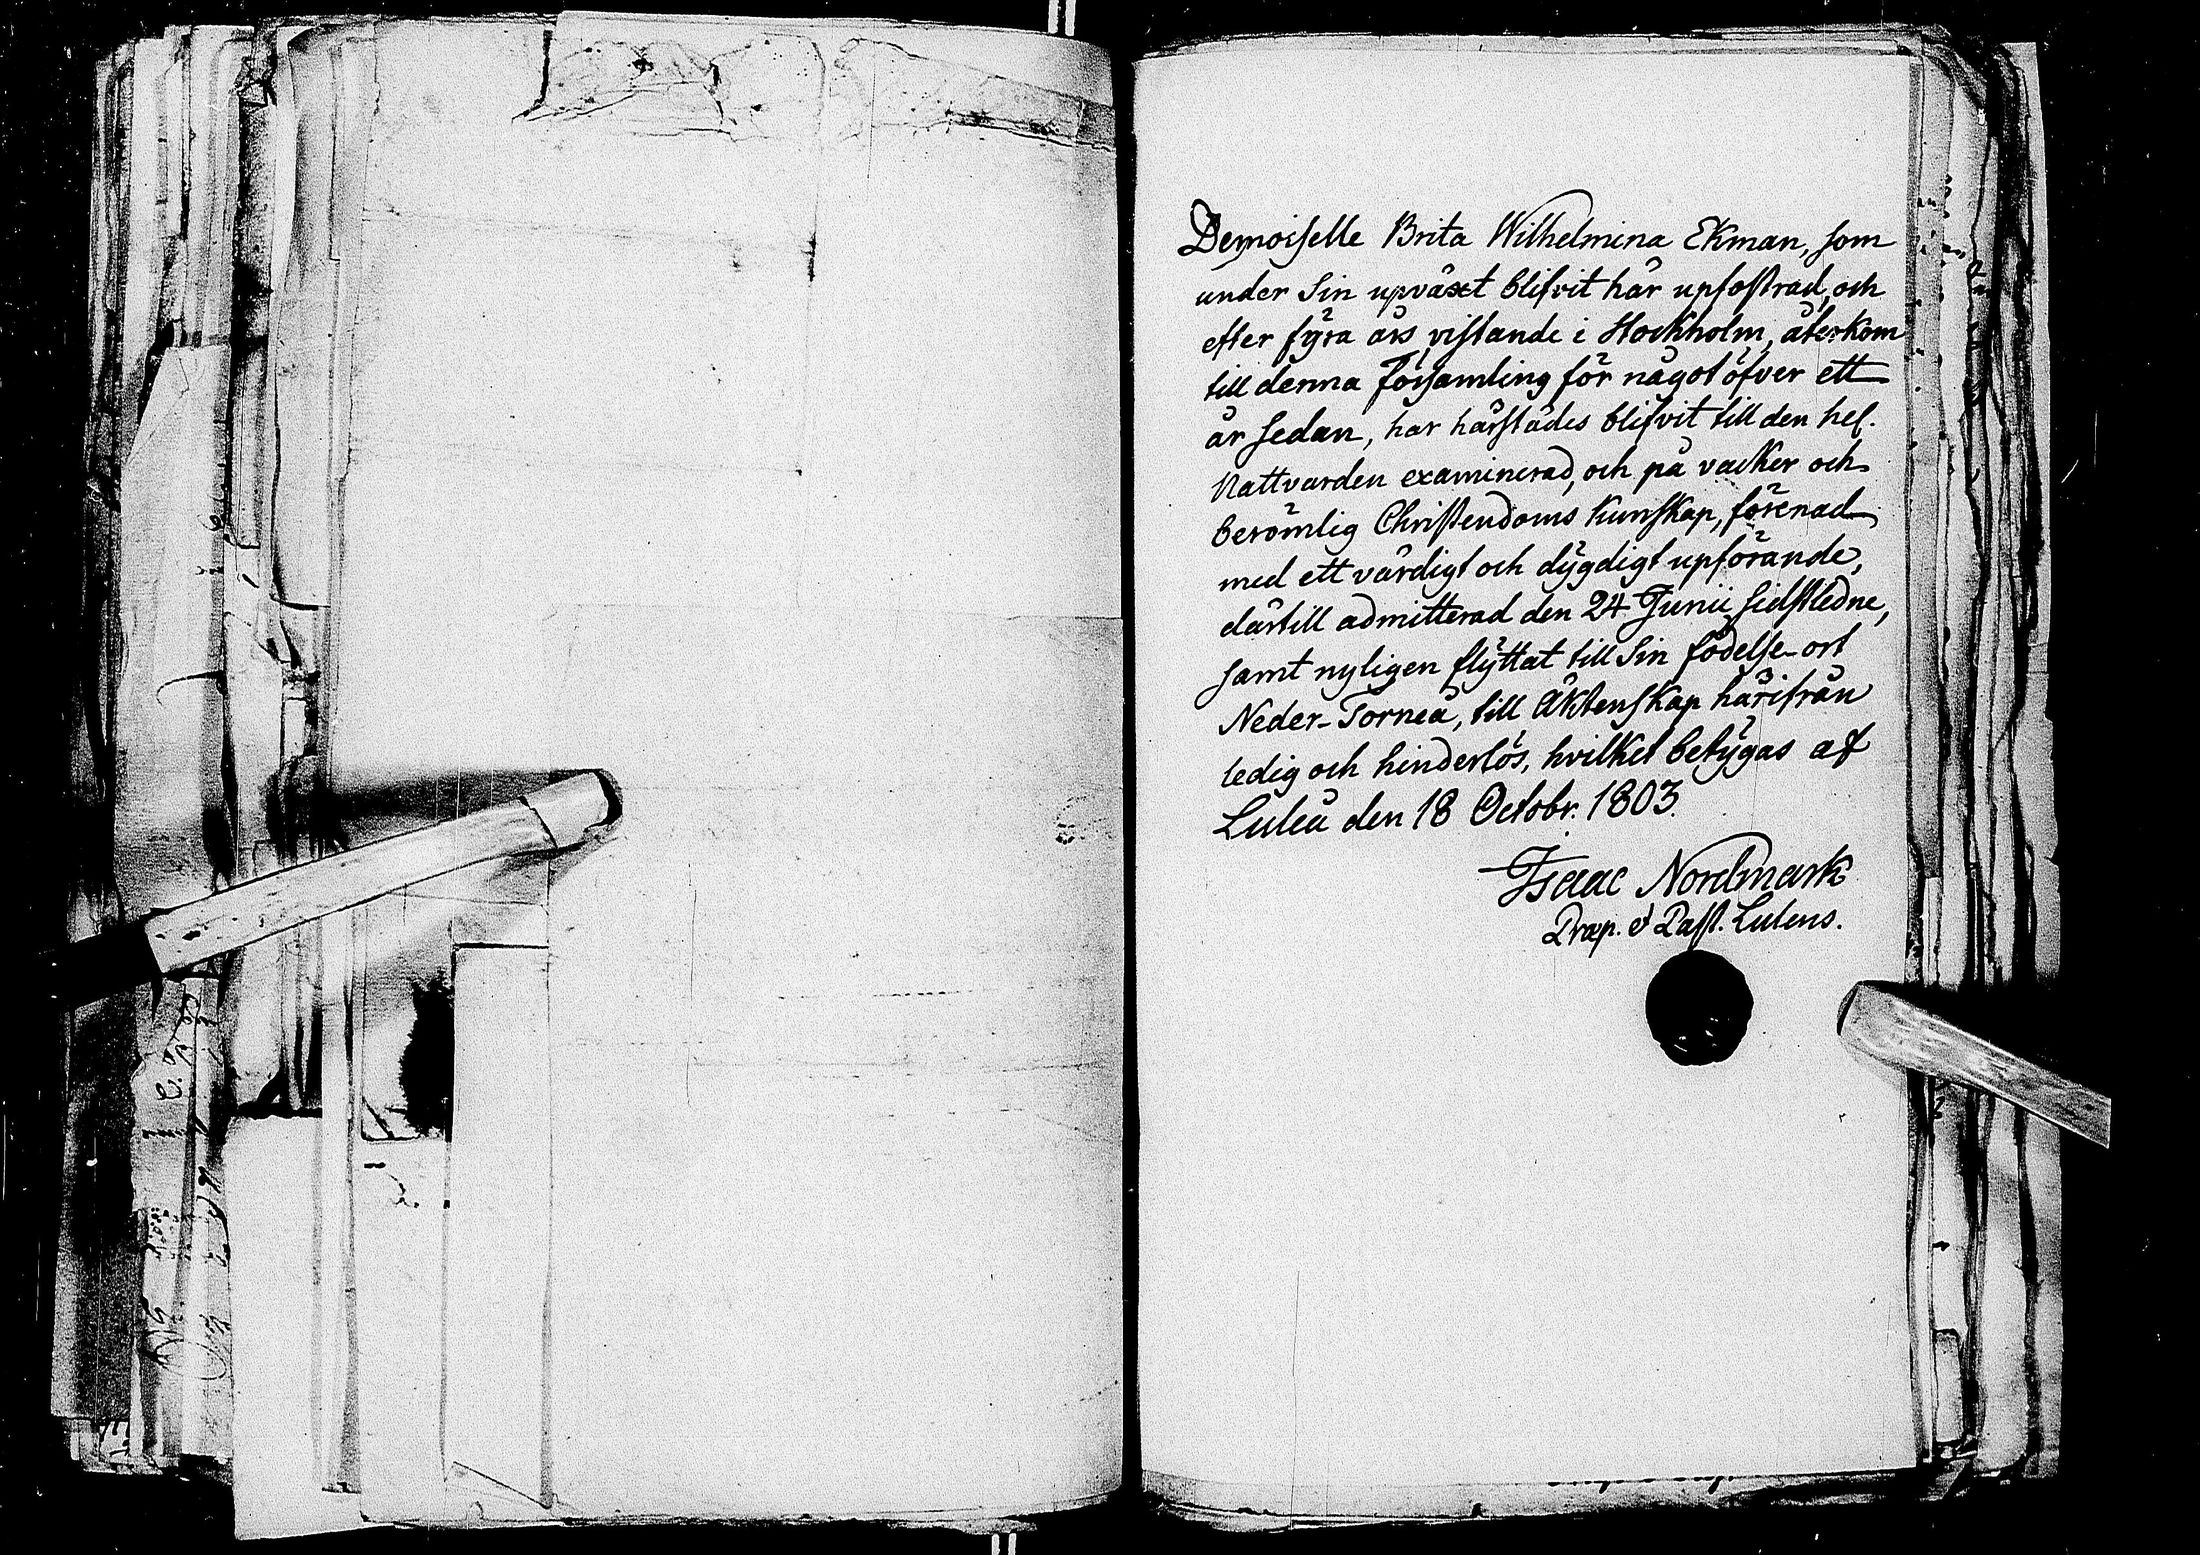 Demoiselle Brita Wilhelmina Ekman, som
under Sin upväxt blifvit här upfostrad, och
efter fyra års vistande i Stockholm, återkom
till denna Församling för något öfver ett
år sedan, har härstädes blifvit till den hel.
Nattvarden examinerad, och på vacker och
berömlig Christendoms kunskap, förenad
med ett värdigt och dygdigt upförande,
därtill admitterad den 24 Junii sidstledne,
samt nyligen flyttat till Sin födelse-ort
Neder-Torneå, till Äktenskap härifrån
ledig och hinderlös, hvilket betygas af
Luleå den 18 Octobr. 1803.
Isaac Nordmark
Præp. et Past. Lulens.